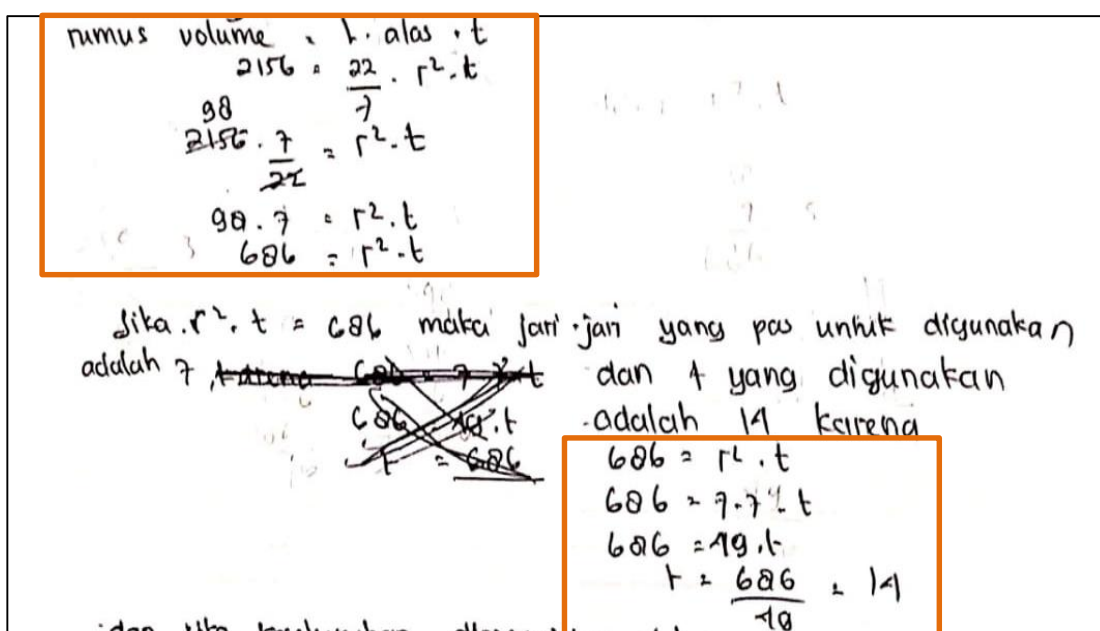 rumus volume = L. alas . t
2156 = 22/7 . r². t
98
2156 . 7/22 = r². t
98 . 7 = r². t
686 = r². t
Jika . r². t = 686 maka jari-jari yang pas untuk digunakan
adalah 7, karena 686 = 7² t dan t yang digunakan
686 49. t adalah 14 karena
t = 686 686 = r². t
686 = 7.7. t
686 = 49. t
t = 686/49 = 14